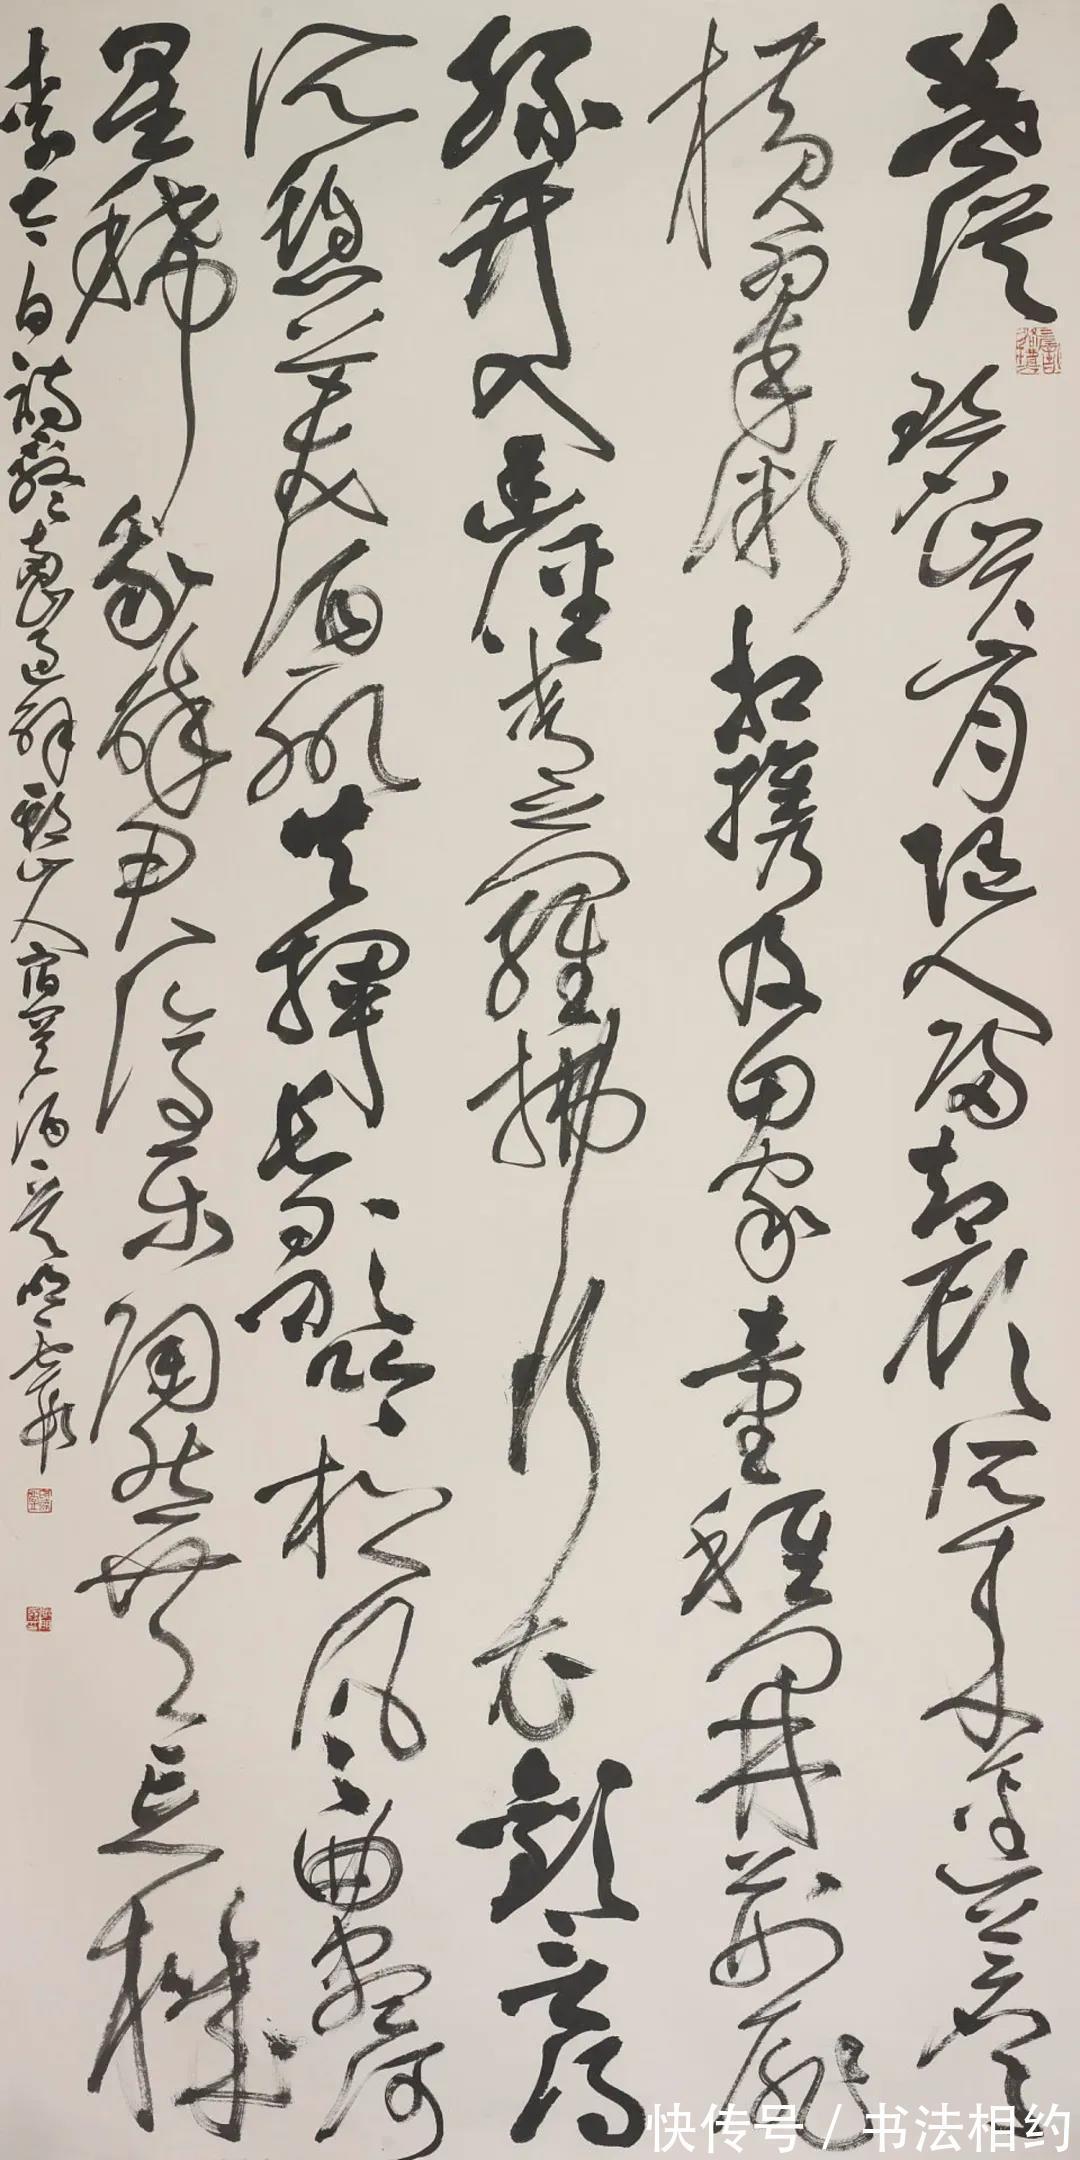 暮從碧山下山月隨人歸却顧所來徑蒼蒼
橫翠微相攜及田家童稚開荊扉
綠竹入幽徑青蘿拂行衣歡言得
所憩美酒聊共揮長歌吟松風曲盡河
星稀我醉君復樂陶然共忘機
李太白詩終南山過斛斯山人宿置酒
快传号 / 书法相约